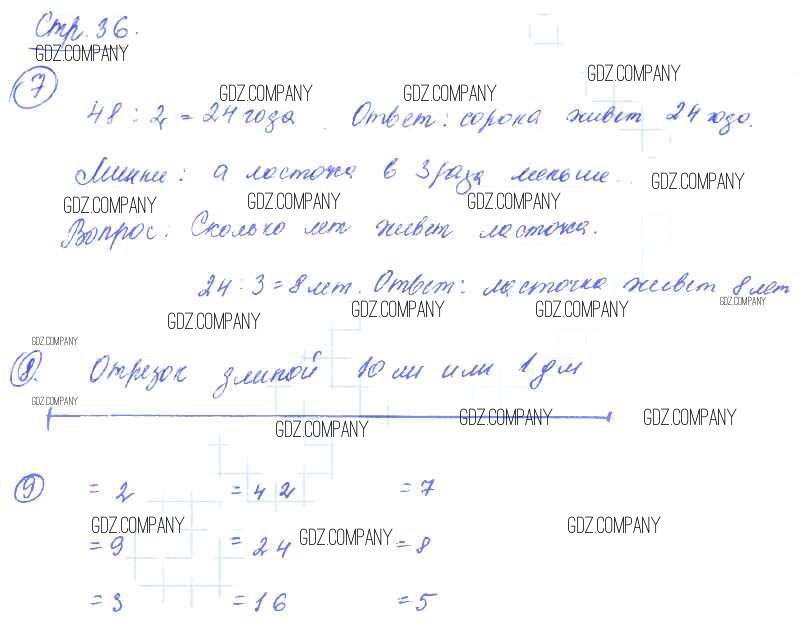 Стр. 36.
GDZ.COMPANY
GDZ.COMPANY
7
GDZ.COMPANY GDZ.COMPANY
48 : 2 = 24 года Ответ: сорока живет 24 года.
а ласточка в 3 раза меньше.
GDZ.COMPANY
GDZ.COMPANY GDZ.COMPANY GDZ.COMPANY
Вопрос: Сколько лет живет ласточка.
24 : 3 = 8 лет. Ответ: ласточка живет 8 лет
GDZ.COMPANY
GDZ.COMPANY GDZ.COMPANY GDZ.COMPANY
GDZ.COMPANY
8. Отрезок длиной 10 см или 1 дм
GDZ.COMPANY
GDZ.COMPANY GDZ.COMPANY GDZ.COMPANY
9 = 2 = 42 = 7
GDZ.COMPANY GDZ.COMPANY GDZ.COMPANY
= 9 = 24 = 8
= 3 = 16 = 5